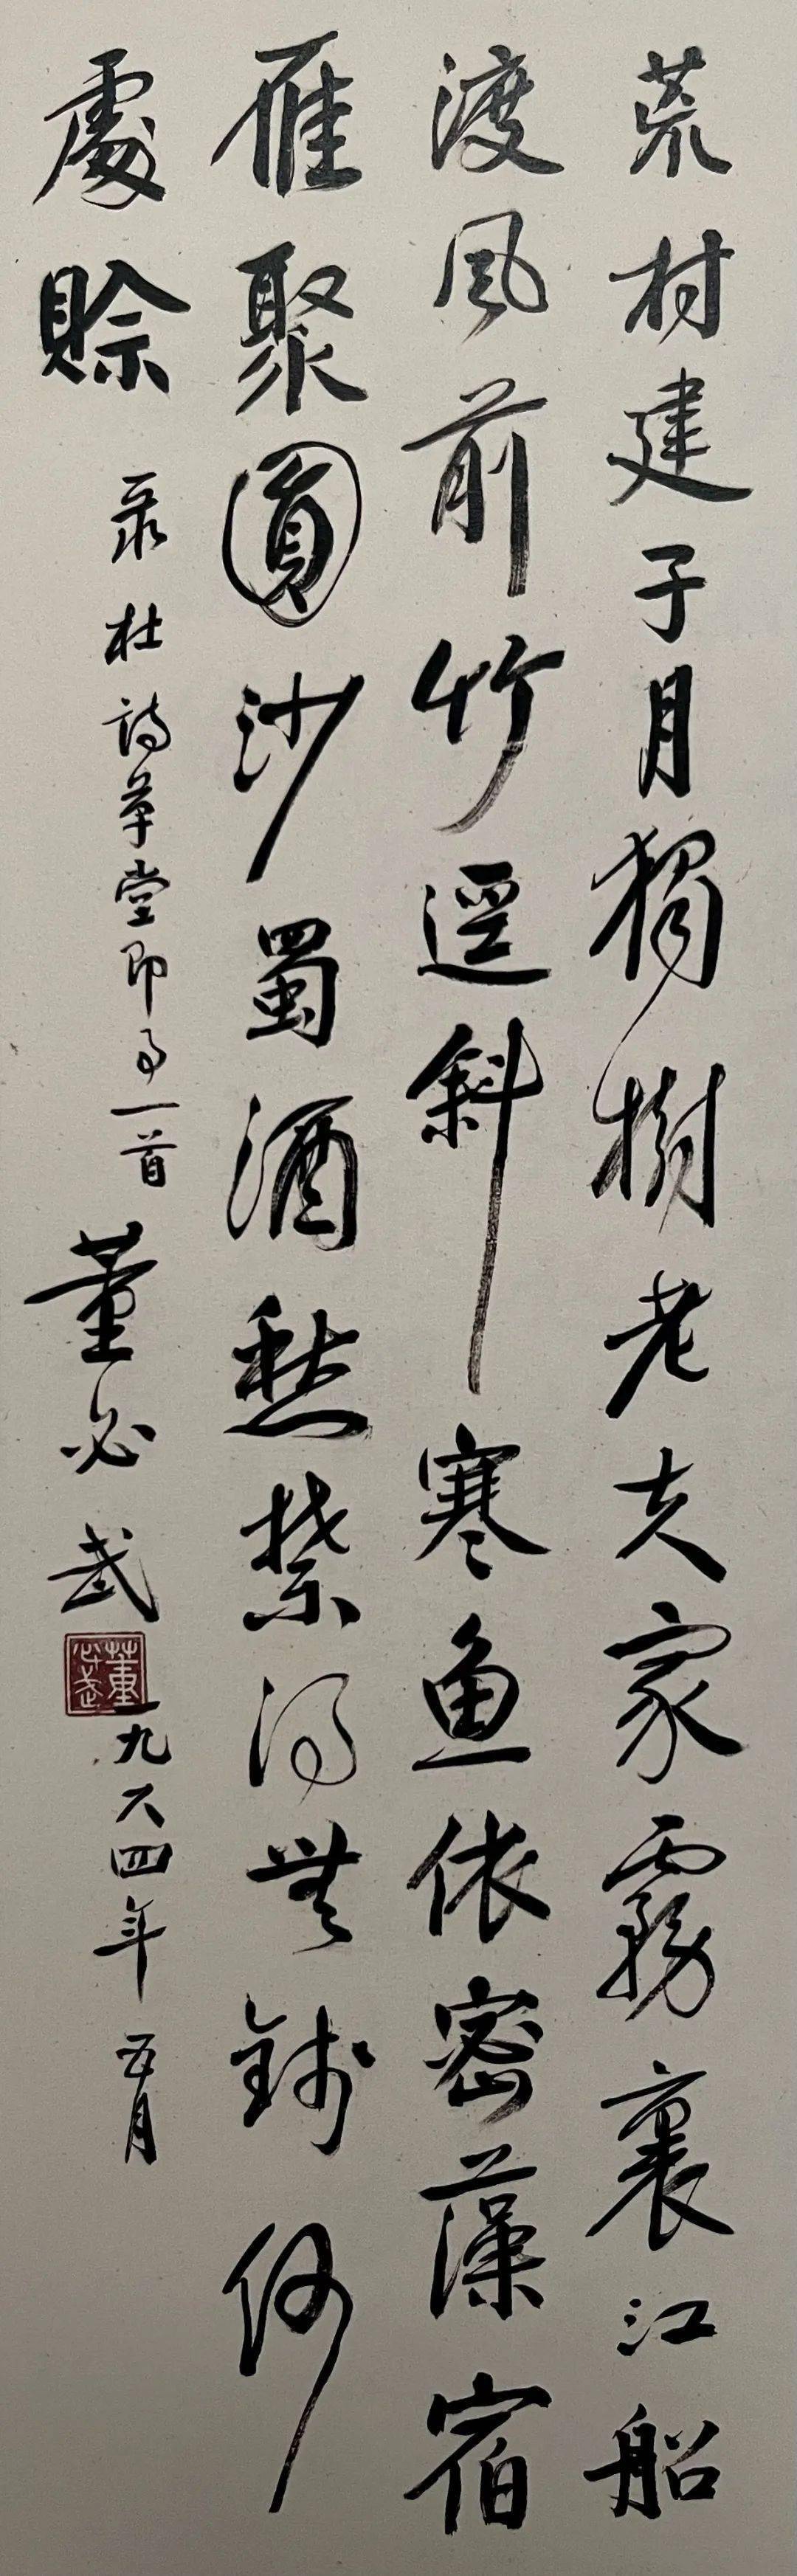 荒村建子月獨樹老夫家霧裏江船
渡風前竹逕斜寒魚依密藻宿
雁聚圓沙蜀酒愁禁得無錢何
處賒
录杜詩草堂即事一首
董必武
董必武
一九六四年五月